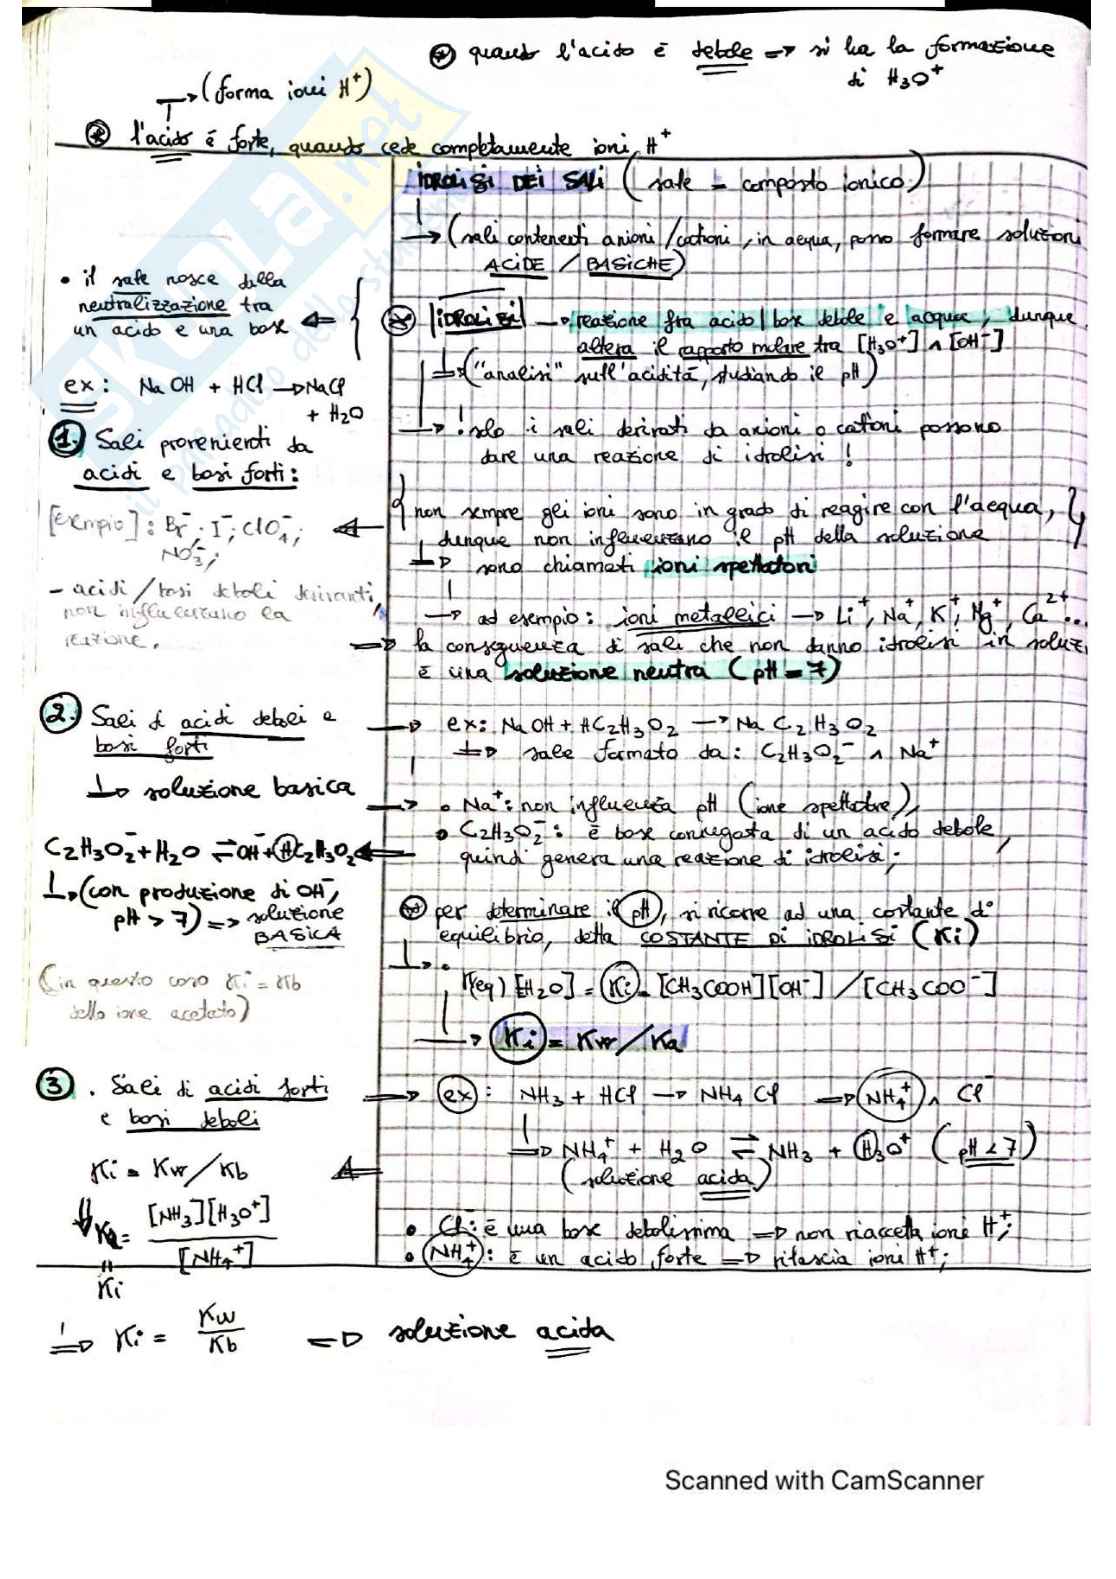 ⊛ quando l'acido è debole => si ha la formazione
di H₃O⁺
→ (forma ioni H⁺)
⊛ l'acido è forte, quando cede completamente ioni H⁺
IDROLISI DEI SALI (sale = composto ionico)
→ (sali contenenti anioni/cationi, in acqua, posso formare soluzioni
ACIDE / BASICHE)
• il sale nasce dalla
neutralizzazione tra
un acido e una base
ex: NaOH + HCl → NaCl
+ H₂O
⊛ IDROLISI → reazione fra acido/base debole e acqua, dunque
altera il rapporto molare tra [H₃O⁺] ∧ [OH⁻]
→ ("analisi" sull'acidità, studiando il pH)
→ ! solo i sali derivati da anioni o cationi possono
dare una reazione di idrolisi !
1. Sali provenienti da
acidi e basi forti:
[Esempio]: Br⁻; I⁻; ClO₄⁻;
NO₃⁻;
- acidi/basi deboli derivanti,
non influenzano la
reazione.
{ non sempre gli ioni sono in grado di reagire con l'acqua, }
dunque non influenzano il pH della soluzione
=> sono chiamati ioni spettatori
→ ad esempio: ioni metallici → Li⁺, Na⁺, K⁺, Mg⁺, Ca²⁺...
=> la conseguenza di sali che non danno idrolisi in soluz.
è una soluzione neutra (pH = 7)
2. Sali di acidi deboli e
basi forti
=> soluzione basica
C₂H₃O₂⁻ + H₂O ⇌ OH⁻ + HC₂H₃O₂
→ (con produzione di OH⁻,
pH > 7) => soluzione
BASICA
(in questo caso Ki = Kb
dello ione acetato)
→ ex: NaOH + HC₂H₃O₂ → NaC₂H₃O₂
=> sale formato da: C₂H₃O₂⁻ ∧ Na⁺
→ • Na⁺: non influenza pH (ione spettatore),
• C₂H₃O₂⁻: è base coniugata di un acido debole,
quindi genera una reazione di idrolisi;
⊛ per determinare il pH, si ricorre ad una costante di
equilibrio, detta COSTANTE DI IDROLISI (Ki)
→ • K(eq) [H₂O] = Ki = [CH₃COOH][OH⁻] / [CH₃COO⁻]
→ Ki = Kw/Ka
3. Sali di acidi forti
e basi deboli
Ki = Kw/Kb
Ka = [NH₃][H₃O⁺] / [NH₄⁺]
=
Ki
=> ex: NH₃ + HCl → NH₄Cl => NH₄⁺ ∧ Cl⁻
=> NH₄⁺ + H₂O ⇌ NH₃ + H₃O⁺ (pH < 7)
(soluzione acida)
• Cl⁻: è una base debolissima => non riaccetta ioni H⁺;
• NH₄⁺: è un acido forte => rilascia ioni H⁺;
=> Ki = Kw / Kb => soluzione acida
SKUOLA.net
il paradiso dello studente
Scanned with CamScanner